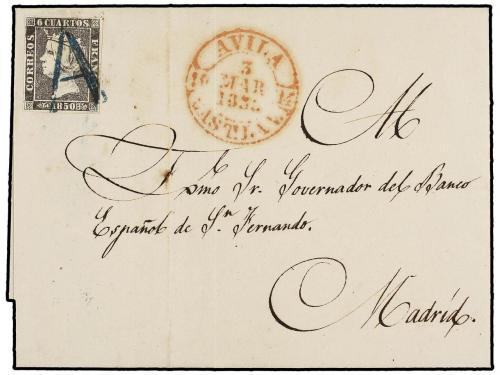 6 CUARTOS
CORREOS
FRANCO
1850
A
AVILA
3
MAR
M
Exmo Sr. Governador del Banco
Español de Sn. Fernando.
Madrid.